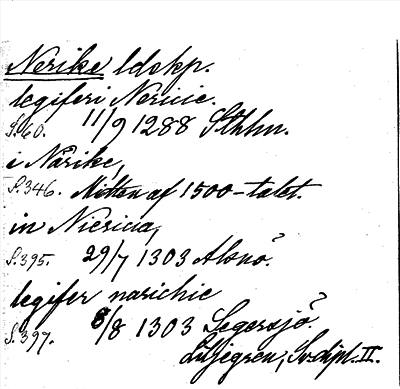 Nerike ldskp.
legiferi Nericie.
S.60. 11/9 1288 Sthlm.
i Närike,
S.346. Mitten af 1500-talet.
in Niericia,
S.395. 29/7 1303 Alsnö.
legifer narichie
S.397. 8/8 1303 Segersjö.
Liljegren, Sv. dipl. II.